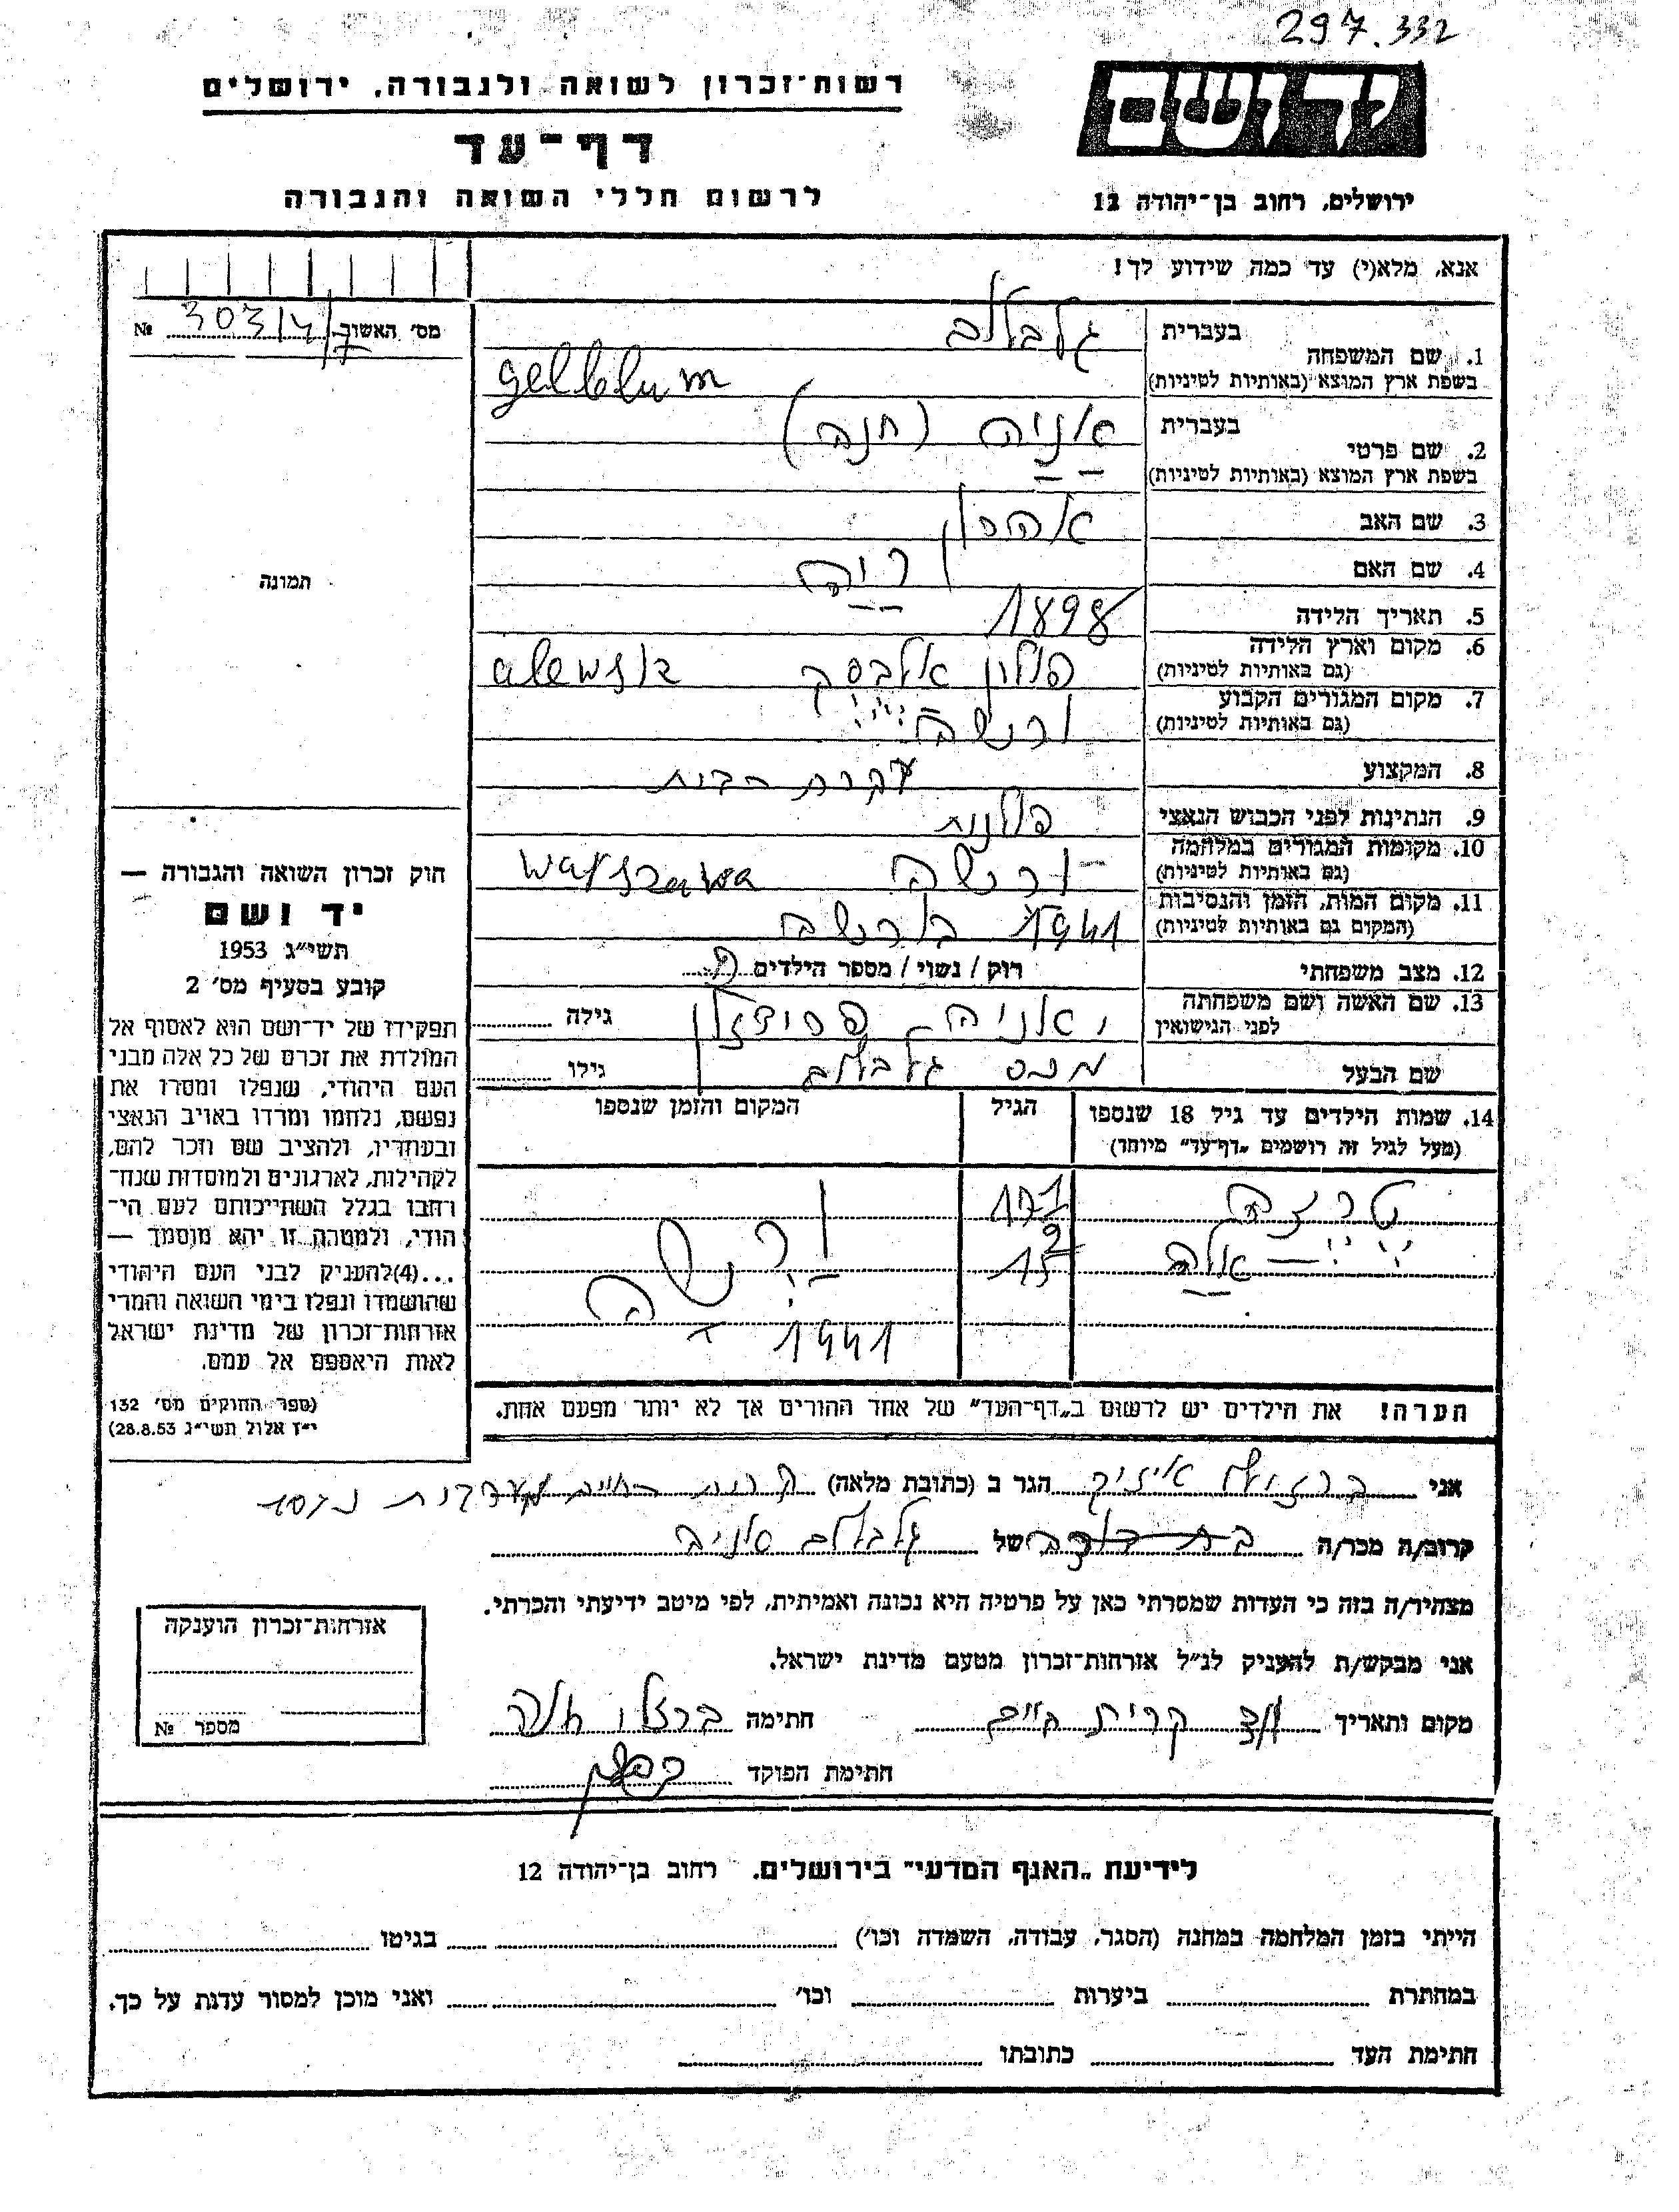 297.332
רשות־זכרון לשואה ולגבורה, ירושלים
יד ושם
דף־עד
לרשום חללי השואה והגבורה
ירושלים, רחוב בן־יהודה 12
אנא, מלא(י) עד כמה שידוע לך!
מס׳ האשור 303/4/7 №
1. שם המשפחה
בעברית גלבלום
בשפת ארץ המוצא (באותיות לטיניות) gelblum
2. שם פרטי
בעברית אניה (חנה)
בשפת ארץ המוצא (באותיות לטיניות)
3. שם האב אהרון
4. שם האם
5. תאריך הלידה 1898
6. מקום וארץ הלידה פולין
(גם באותיות לטיניות)
7. מקום המגורים הקבוע ורשה
(גם באותיות לטיניות)
8. המקצוע עקרת הבית
9. הנתינות לפני הכבוש הנאצי פולנית
10. מקומות המגורים במלחמה ורשה warszawa
(גם באותיות לטיניות)
11. מקום המות, הזמן והנסיבות 1941 בורשה
(המקום גם באותיות לטיניות)
12. מצב משפחתי רוק / נשוי / מספר הילדים
13. שם האשה ושם משפחתה אניה גילה
לפני הנישואין
שם הבעל גלבלום גילו
14. שמות הילדים עד גיל 18 שנספו הגיל המקום והזמן שנספו
(מעל לגיל זה רושמים „דף־עד״ מיוחד)
ורשה
1941
הערה! את הילדים יש לרשום ב„דף־העד״ של אחד ההורים אך לא יותר מפעם אחת.
תמונה
חוק זכרון השואה והגבורה —
יד ושם
תשי״ג 1953
קובע בסעיף מס׳ 2
תפקידו של יד־ושם הוא לאסוף אל
המולדת את זכרם של כל אלה מבני
העם היהודי, שנפלו ומסרו את
נפשם, נלחמו ומרדו באויב הנאצי
ובעוזריו, ולהציב שם וזכר להם,
לקהילות, לארגונים ולמוסדות שנח־
רחבו בגלל השתייכותם לעם הי־
הודי, ולמטרה זו יהא מוסמך —
...(4)להעניק לבני העם היהודי
שהושמדו ונפלו בימי השואה והמרי
אזרחות־זכרון של מדינת ישראל
לאות היאספם אל עמם.
(ספר החוקים מס׳ 132
י״ז אלול תשי״ג 28.8.53)
אני הגר ב (כתובת מלאה) קרית חיים
קרוב/ה מכר/ה של גלבלום
מצהיר/ה בזה כי העדות שמסרתי כאן על פרטיה היא נכונה ואמיתית, לפי מיטב ידיעתי והכרתי.
אני מבקש/ת להעניק לנ״ל אזרחות־זכרון מטעם מדינת ישראל.
מקום ותאריך קרית חיים חתימה
חתימת הפוקד
אזרחות־זכרון הוענקה
מספר №
לידיעת „האגף המדעי״ בירושלים, רחוב בן־יהודה 12
הייתי בזמן המלחמה במחנה (הסגר, עבודה, השמדה וכו׳) בגיטו
במחתרת ביערות וכו׳ ואני מוכן למסור עדות על כך.
חתימת העד כתובתו